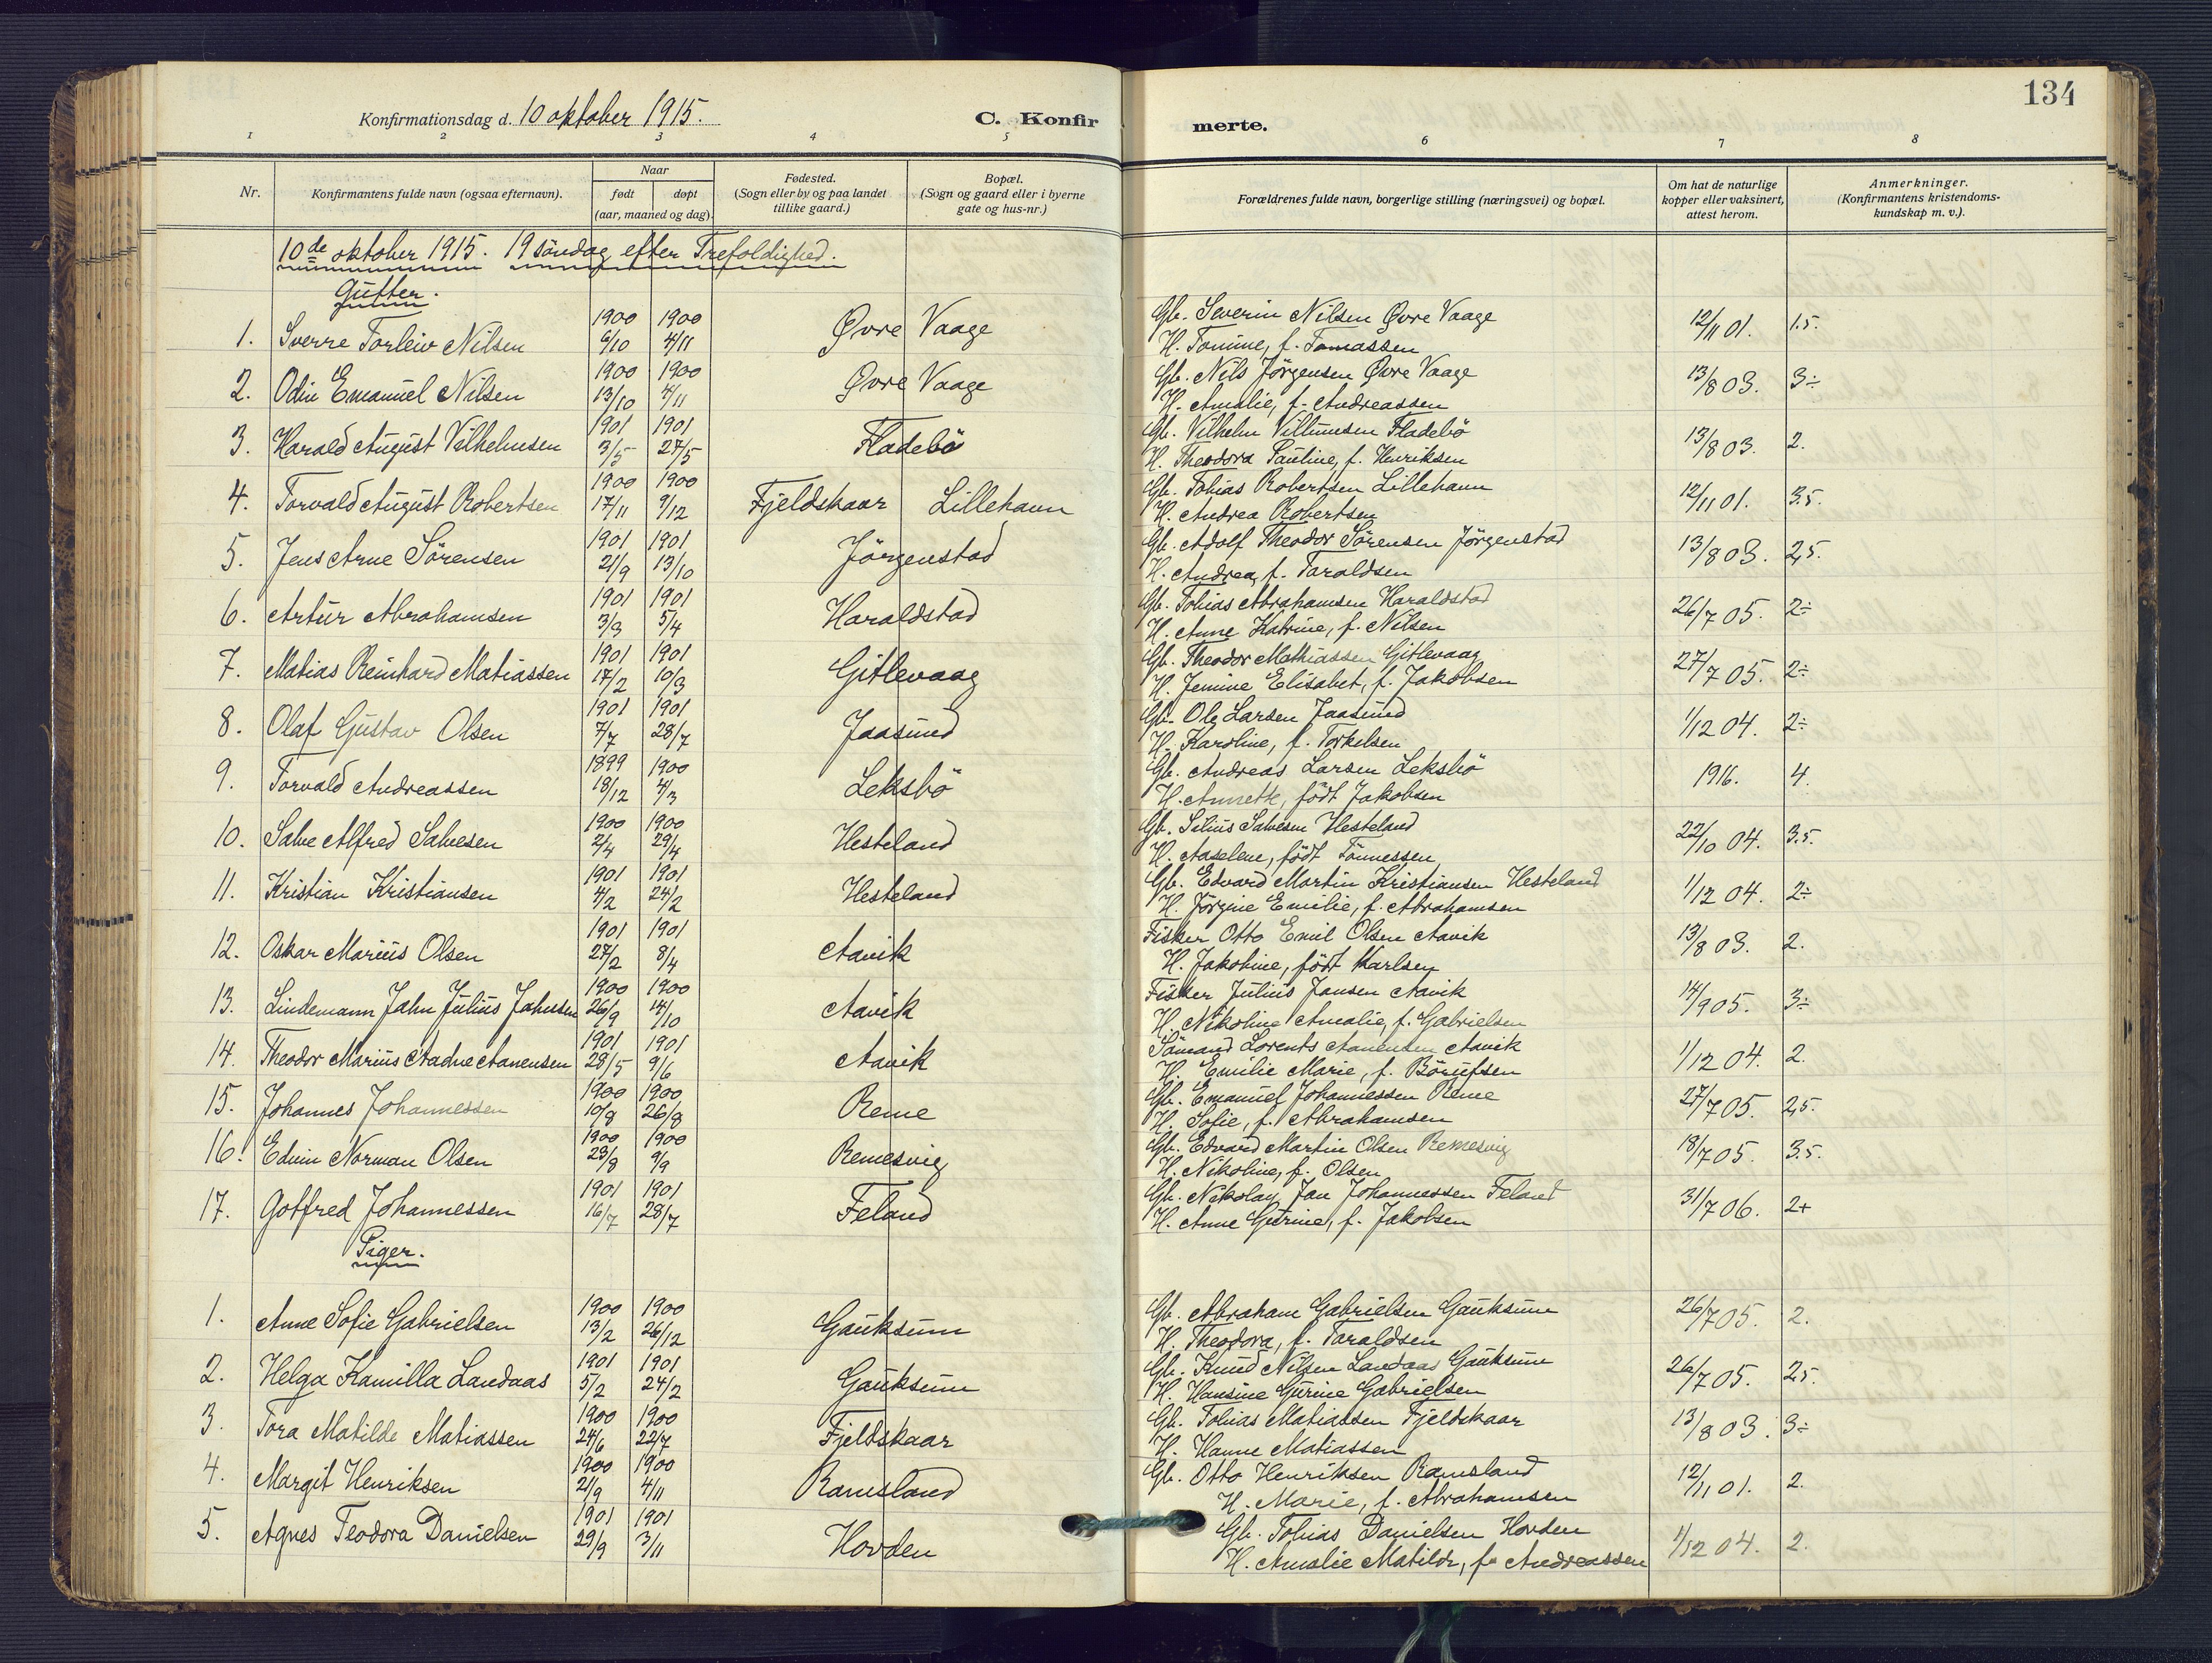 134
Konfirmationsdag d. 10 oktober 1915.
C. Konfirmerte.
1 2 3 4 5 6 7 8
Nr.
Konfirmantens fulde navn (ogsaa efternavn).
Naar
født døpt
(aar, maaned og dag).
Fødested.
(Sogn eller by og paa landet
tillike gaard.)
Bopæl.
(Sogn og gaard eller i byerne
gate og hus-nr.)
Forældrenes fulde navn, borgerlige stilling (næringsvei) og bopæl.
Om hat de naturlige
kopper eller vaksinert,
attest herom.
Anmerkninger.
(Konfirmantens kristendoms-
kundskap m. v.).
10de oktober 1915. 19 söndag efter Trefoldighed.
Gutter.
1. Sverre Torleiv Nilsen 1900 6/10 1900 4/11 Øvre Vaage Gb. Severin Nilsen Øvre Vaage 12/11 01. 1.5.
H. Tomine, f. Tomassen
2. Odin Emanuel Nilsen 1900 13/10 1900 4/11 Øvre Vaage Gb. Nils Jörgensen Øvre Vaage 13/8 03. 3÷
H. Amalie, f. Andreassen
3. Harald August Vilhelmsen 1901 3/5 1901 27/5 Fladebö Gb. Vilhelm Villumsen Fladebö 13/8 03. 2.
H. Theodora Pauline, f. Henriksen
4. Torvald August Robertsen 1900 17/11 1900 9/12 Fjeldskaar Lillehavn Gb. Tobias Robertsen Lillehavn 12/11 01. 3.5.
H. Andrea Robertsen
5. Jens Arne Sörensen 1901 21/9 1901 13/10 Jörgenstad Gb. Adolf Theodor Sörensen Jörgenstad 13/8 03. 2,5.
H. Andrea, f. Taraldsen
6. Artur Abrahamsen 1901 3/3 1901 5/4 Haraldstad Gb. Tobias Abrahamsen Haraldstad 26/7 05. 2÷
H. Anne Katrine, f. Nilsen
7. Matias Reinhard Matiassen 1901 17/2 1901 10/3 Gitlevaag Gb. Theodor Mathiassen Gitlevaag 27/7 05. 2÷
H. Jemine Elisabet, f. Jakobsen
8. Olaf Gustav Olsen 1901 7/7 1901 28/7 Jaasund Gb. Ole Larsen Jaasund 1/12 04. 2÷
H. Karoline, f. Torkelsen
9. Torvald Andreassen 1899 18/12 1900 4/3 Leksbö Gb. Andreas Larsen Leksbö 1916. 4.
H. Annette, födt Jakobsen
10. Salve Alfred Salvesen 1900 2/4 1900 29/4 Hesteland Gb. Silius Salvesen Hesteland 22/10 04. 3.5.
H. Aaselene, födt Tönnessen
11. Kristian Kristiansen 1901 4/2 1901 24/2 Hesteland Gb. Edvard Martin Kristiansen Hesteland 1/12 04. 2÷
H. Jörgine Emilie, f. Abrahamsen
12. Oskar Marius Olsen 1901 27/2 1901 8/4 Aavik Fisker Otto Emil Olsen Aavik 13/8 03. 2.
H. Jakobine, födt Karlsen
13. Lindemann Jahn Julius Jahnsen 1900 26/9 1900 14/10 Aavik Fisker Julius Jansen Aavik 14/9 05. 3÷
H. Nikoline Amalie, f. Gabrielsen
14. Theodor Marius Aadne Aanensen 1901 28/5 1901 9/6 Aavik Sömand Lorents Aanensen Aavik 1/12 04. 2.
H. Emilie Marie, f. Börufsen
15. Johannes Johannessen 1900 10/8 1900 26/8 Reme Gb. Emanuel Johannessen Reme 27/7 05. 2,5.
H. Sofie, f. Abrahamsen
16. Edvin Norman Olsen 1900 23/8 1900 9/9 Remesvig Gb. Edvard Martin Olsen Remesvig 18/7 05. 3.5.
H. Nikoline, f. Olsen
17. Gotfred Johannessen 1901 16/7 1901 28/7 Feland Gb. Nikolay Jan Johannessen Feland 31/7 06. 2+
H. Anne Gurine, f. Jakobsen
Piger.
1. Anne Sofie Gabrielsen 1900 13/2 1900 26/12 Gauksum Gb. Abraham Gabrielsen Gauksum 26/7 05. 2.
H. Theodora, f. Taraldsen
2. Helga Kamilla Landaas 1901 5/2 1901 24/2 Gauksum Gb. Knud Nilsen Landaas Gauksum 26/7 05. 2,5.
H. Hansine Gurine Gabrielsen
3. Tora Matilde Matiassen 1900 24/6 1900 22/7 Fjeldskaar Gb. Tobias Matiassen Fjeldskaar 13/8 03. 3÷
H. Hanne Matiassen
4. Margit Henriksen 1900 21/9 1900 4/11 Ramsland Gb. Otto Henriksen Ramsland 12/11 01. 2.
H. Marie, f. Abrahamsen
5. Agnes Teodora Danielsen 1901 29/9 1901 3/11 Hovden Gb. Tobias Danielsen Hovden 1/12 04. 2.
H. Amalie Matilde, f. Andreassen